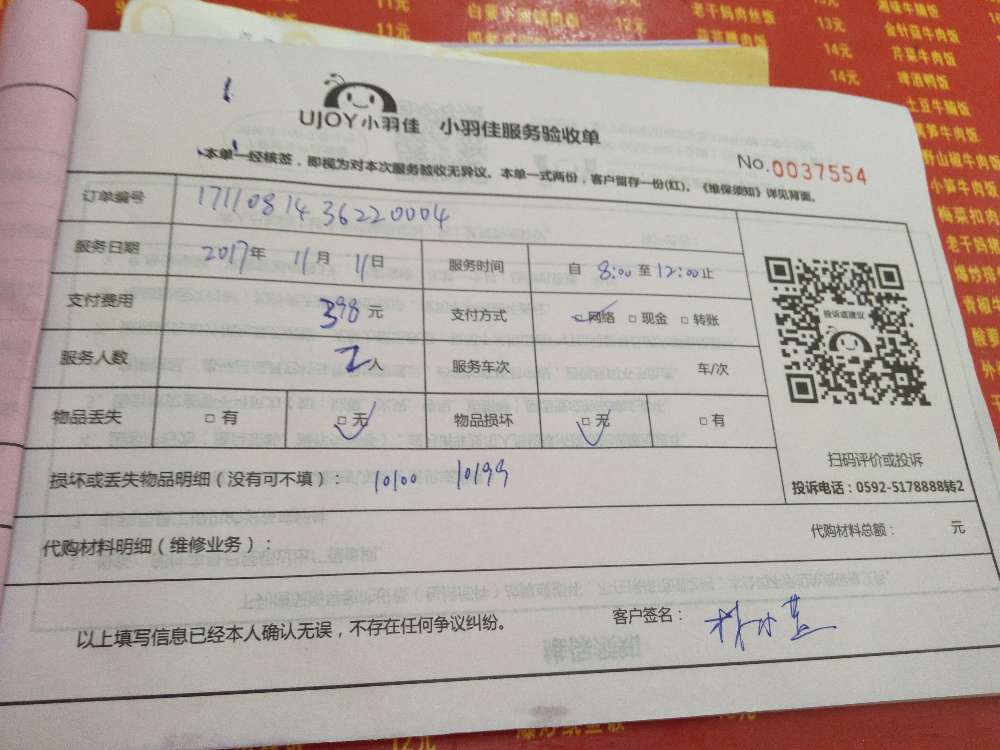 11元
白菜牛腩饭
12元
老干妈肉丝饭
13元
金针菇牛肉饭
14元
芹菜牛肉饭
14元
啤酒鸭饭
土豆牛腩饭
UJOY小羽佳 小羽佳服务验收单
本单一经核签，即视为对本次服务验收无异议。本单一式两份，客户留存一份(红)。《维保须知》详见背面。
No.0037554
订单编号 1711081436220004
服务日期 2017年 11月 11日 服务时间 自 8:00 至 12:00 止
支付费用 398元 支付方式 网络 □ 现金 □ 转账
服务人数 2人 服务车次 车/次
物品丢失 □ 有 □ 无 物品损坏 □ 无 □ 有
损坏或丢失物品明细（没有可不填）： 10100 10199
投诉或建议
扫码评价或投诉
投诉电话：0592-5178888转2
代购材料明细（维修业务）：
代购材料总额： 元
以上填写信息已经本人确认无误，不存在任何争议纠纷。
客户签名：
野山椒牛肉饭
小笋牛肉饭
梅菜扣肉
老干妈排
爆炒排
青椒牛
12元